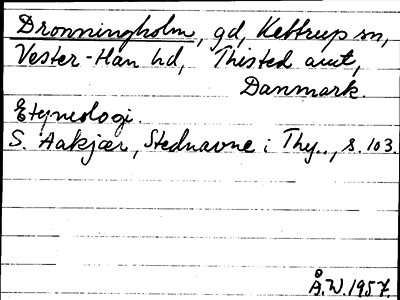 Dronningholm, gd, Kettrup sn,
Vester-Han hd, Thisted amt,
Danmark.
Etymologi.
S. Aakjær, Stednavne i Thy.., s. 103.
Å.W. 1957.